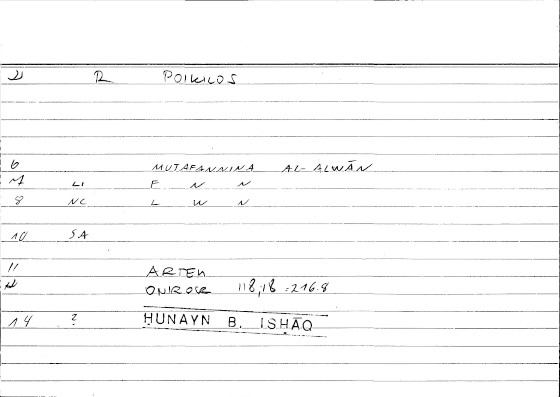 R POIKILOS
6 MUTAFANNINA AL-ALWĀN
7 LI F N N
8 NC L W N
10 SA
11 ARTEM
ONIROCR 118,18 = 216.8
14 ? ḤUNAYN B. ISḤĀQ